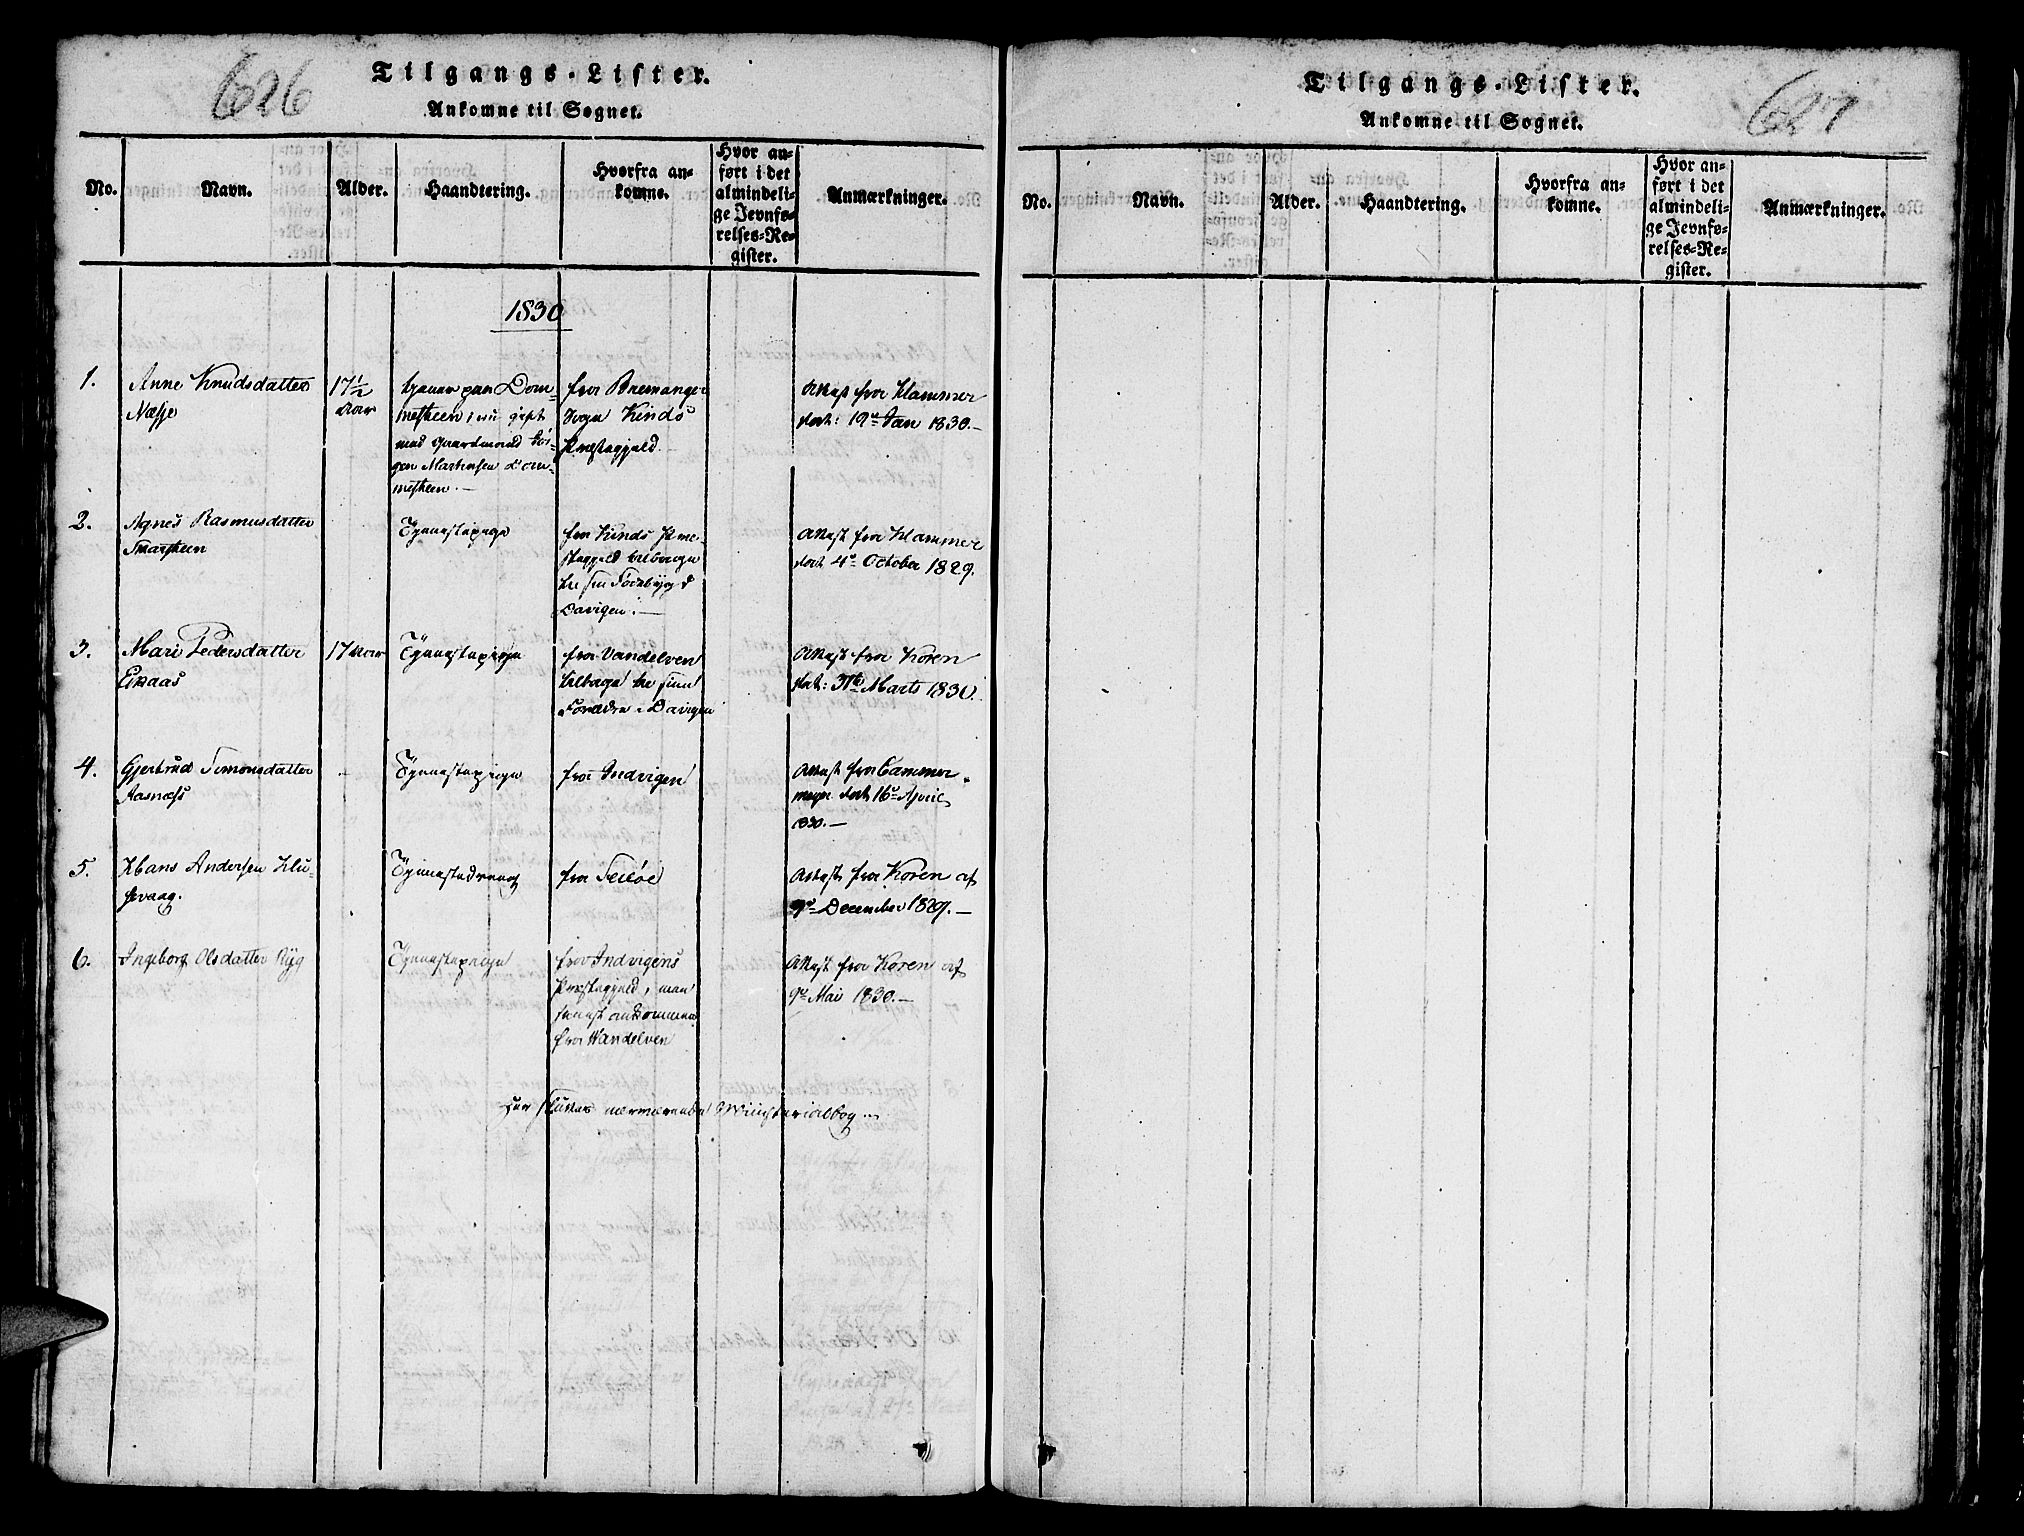 626
Tilgangs-Lister.
Ankomne til Sognet.
No.
Navn.
Alder.
Haandtering.
Hvorfra an-
komne.
Hvor an-
ført i det
almindeli-
ge Jevnfø-
relses-Re-
gister.
Anmærkninger.
1830
1.
Anne Knudsdatter
Næsje
17½
Aar
tjener paa Dom-
mesteen, nu gift
med Gaardmand
gen Martinsen Dom-
mesteen.—
fra Bremanger
Sogn Kinds
Præstegjeld.
Attest fra Klammer
dat: 19de Jan 1830.—
2.
Agnes Rasmusdatter
Tjenestepige
fra Kinds Præ-
stegjeld tilbage
til sin Fødebygd
Davigen.—
Attest fra Klammer
dat 4de October 1829.
3.
Mari Pedersdatter
Eikaas
17 Aar
Tjenestepige
fra Vandelven
tilbage til sine
Forældre i Davigen
Attest fra Koren
dat: 31te Marts 1830.
4.
Gjertrud Simonsdatter
Aasnæss
Tjenestepige
fra Indvigen
Attest fra Cammer-
meyer dat 16de April
1830.—
5.
Hans Andersen Klu-
sevaag.
Tjenestedreng
fra Selløe
Attest fra Koren af
9de December 1829.—
6.
Ingeborg Olsdatter Ryg
Tjenestepige
fra Indvigens
Præstegjeld, men
senest ankommen
fra Vandelven
Attest fra Koren af
9de Mai 1830.—
Her sluttes nærværende Ministerialbog.—
627
Tilgangs-Lister.
Ankomne til Sognet.
No.
Navn.
Alder.
Haandtering.
Hvorfra an-
komne.
Hvor an-
ført i det
almindeli-
ge Jevnfø-
relses-Re-
gister.
Anmærkninger.